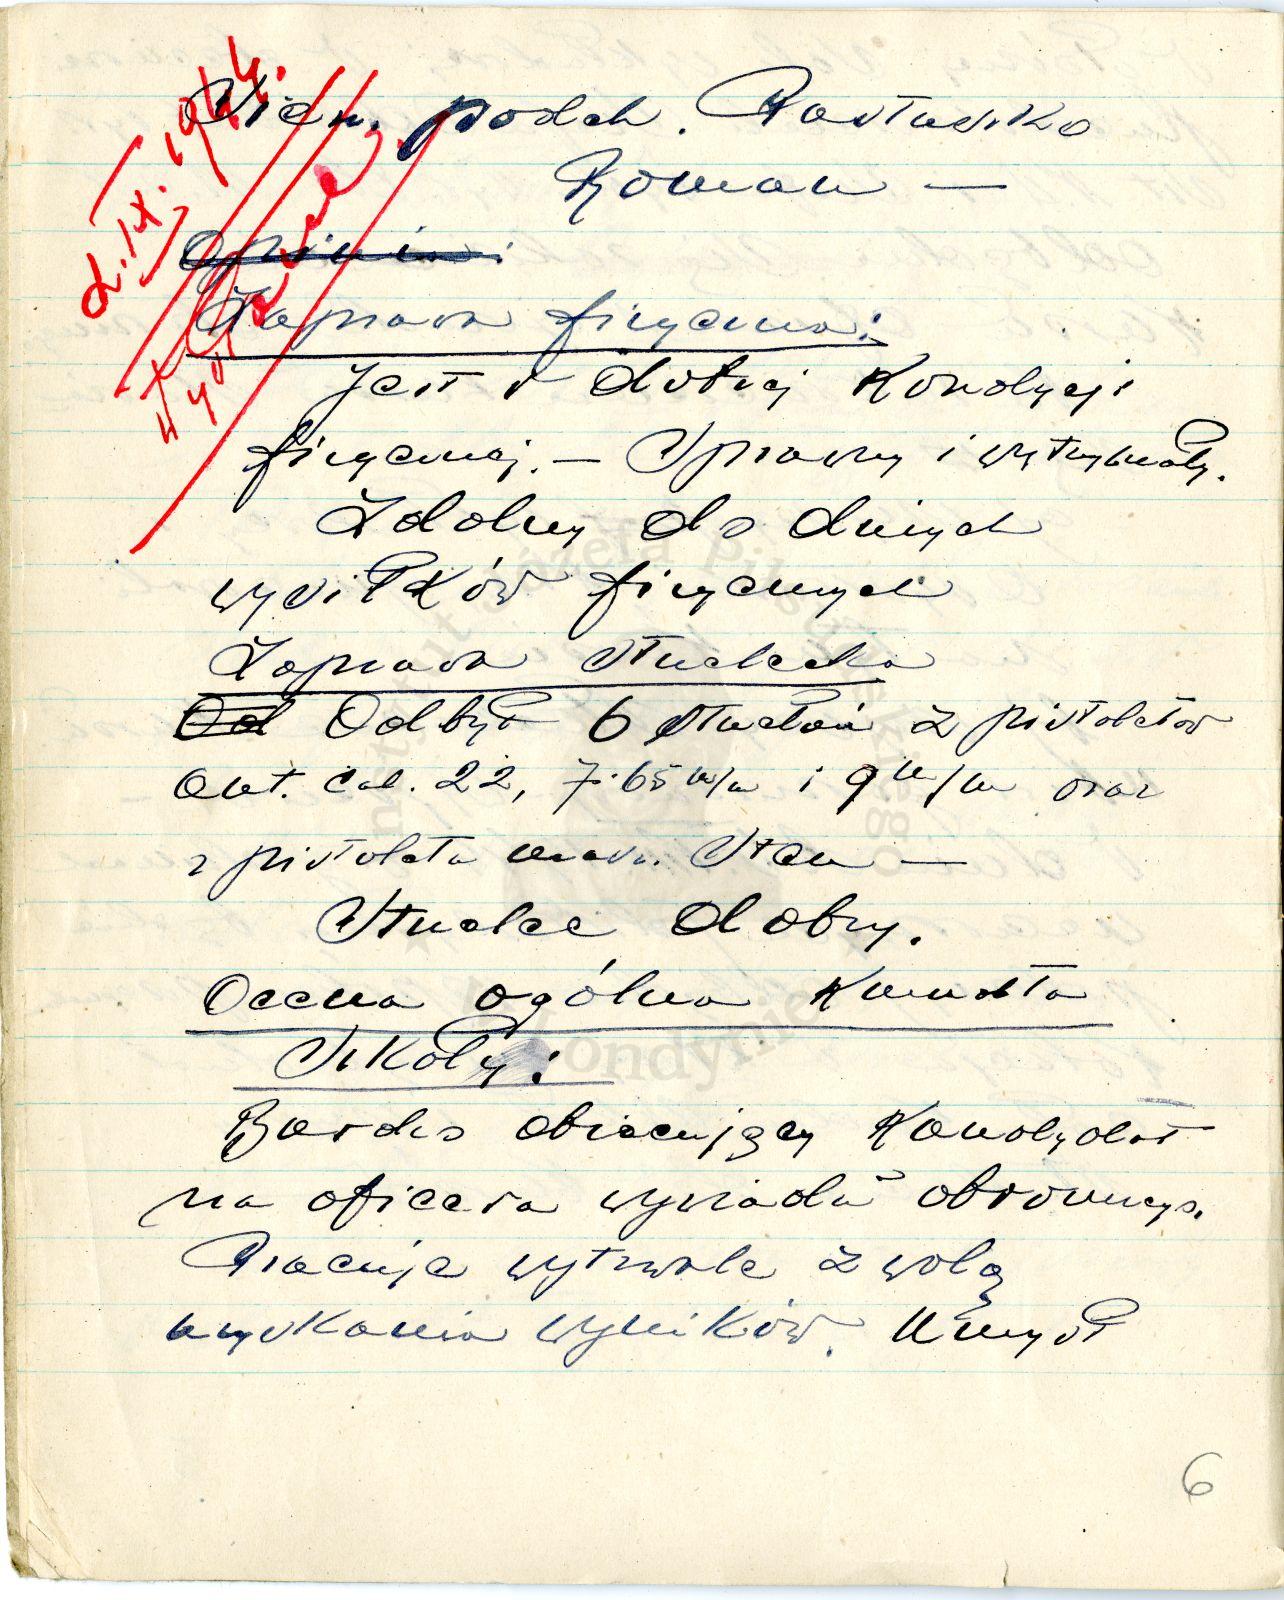 podch. Pastuszko
Roman —
Opinia:
Zaprawa fizyczna:
Jest w dobrej kondycji
fizycznej. — Sprawny i wytrzymały.
Zdolny do dużych
wysiłków fizycznych
Zaprawa strzelecka
Od Odbył 6 strzelań z pistoletów
aut. cal. 22, 7.65 m/m i 9 m/m oraz
z pistoletu masz. Sten —
Strzelec dobry.
Ocena ogólna Kmndta
Szkoły:
Bardzo obiecujący kandydat
na oficera wywiadu obronnego.
Pracuje wytrwale z wolą
uzyskania wyników. Umysł
6
2.IX.1944.
Instytut Józefa Piłsudskiego
w Londynie